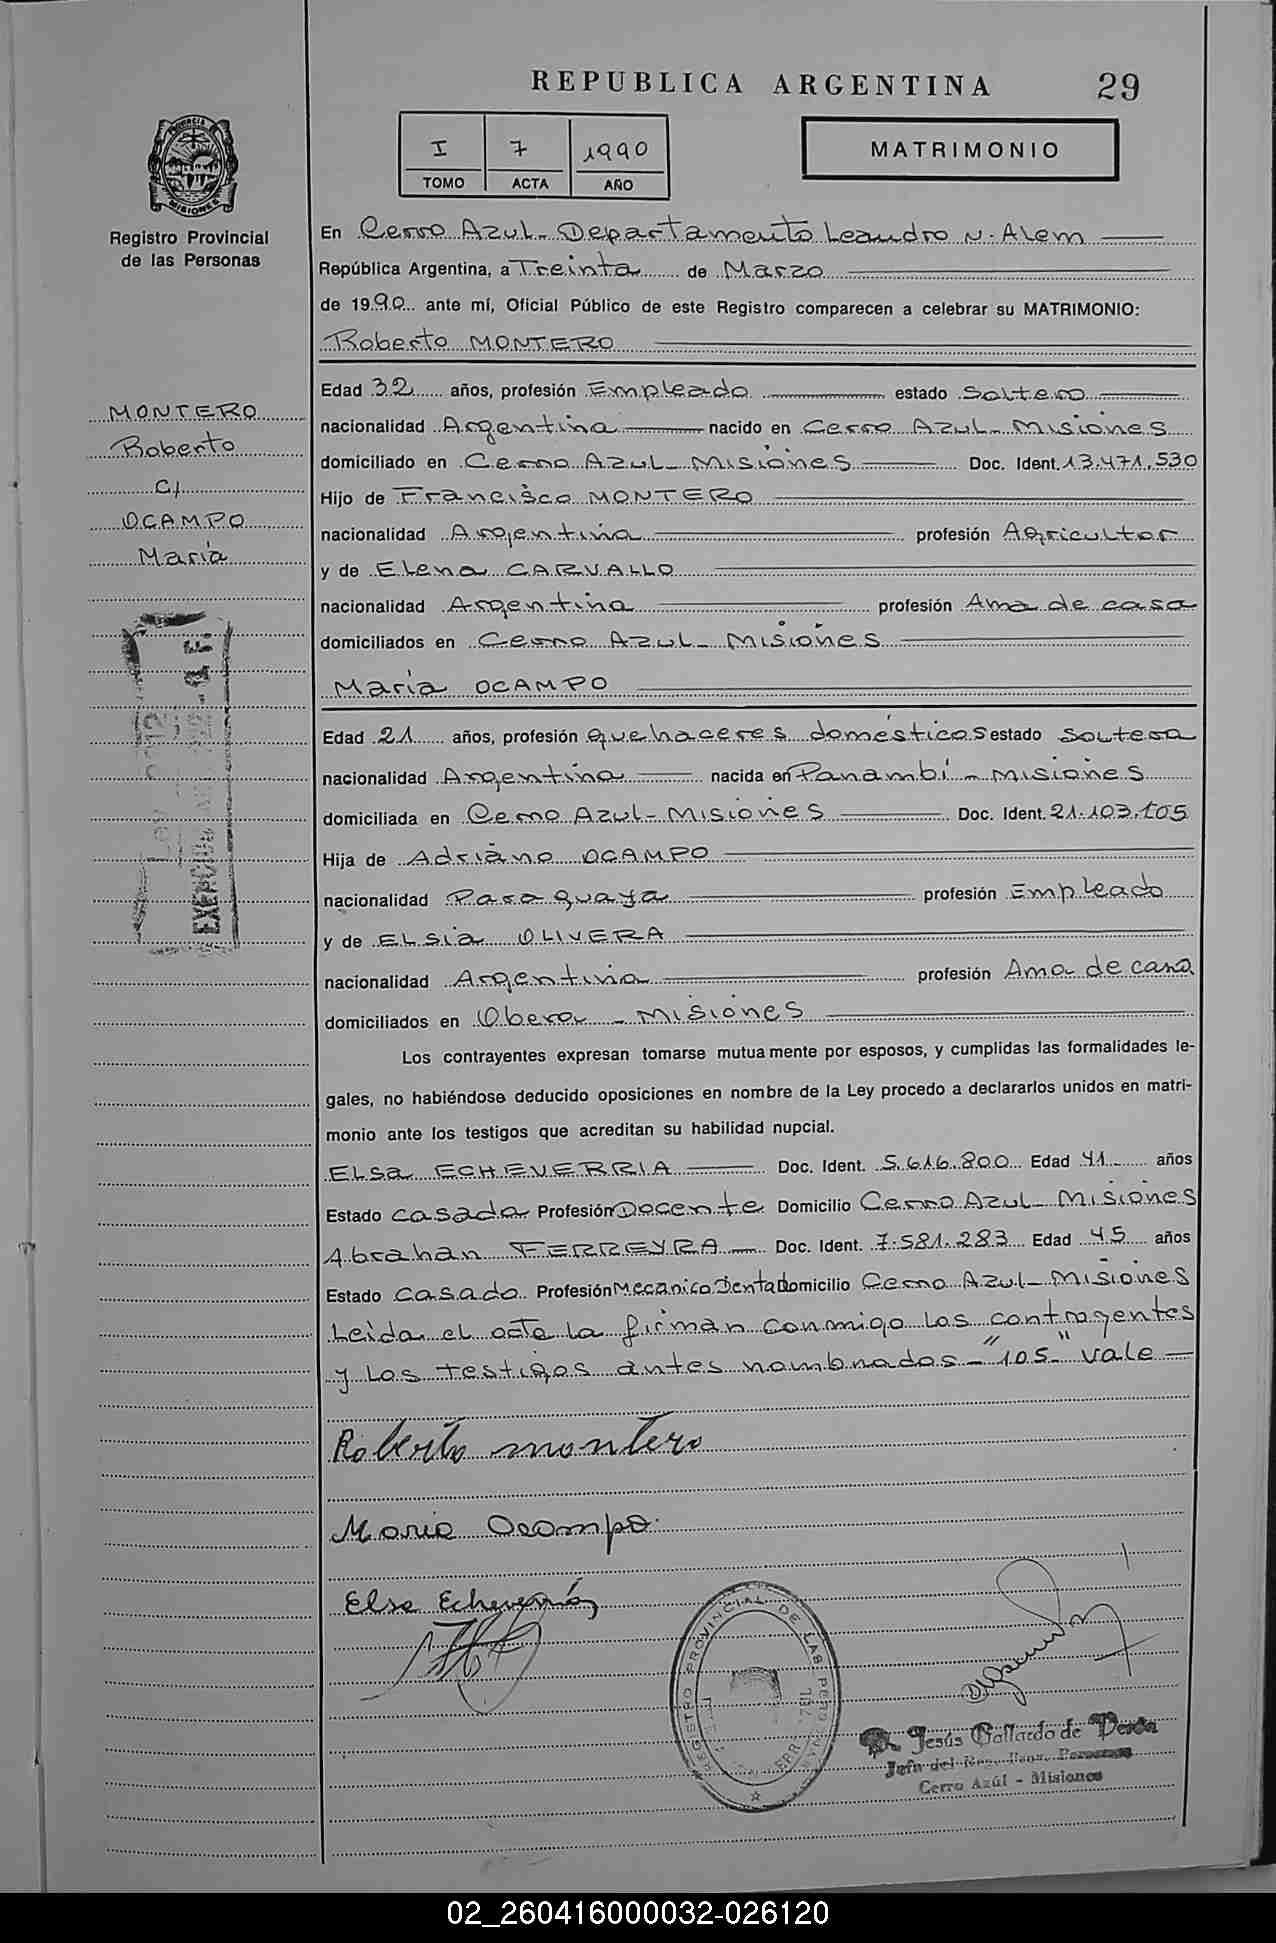 REPUBLICA ARGENTINA
29
I 7 1990
TOMO ACTA AÑO
MATRIMONIO
PROVINCIA
MISIONES
Registro Provincial
de las Personas
En Cerro Azul - Departamento Leandro N. Alem
República Argentina, a Treinta de Marzo
de 1990 ante mí, Oficial Público de este Registro comparecen a celebrar su MATRIMONIO:
Roberto MONTERO
Edad 32 años, profesión Empleado estado Soltero
nacionalidad Argentina nacido en Cerro Azul - Misiones
domiciliado en Cerro Azul - Misiones Doc. Ident. 13.471.530
Hijo de Francisco MONTERO
nacionalidad Argentina profesión Agricultor
y de Elena CARVALLO
nacionalidad Argentina profesión Ama de casa
domiciliados en Cerro Azul - Misiones
María OCAMPO
Edad 21 años, profesión Quehaceres domésticos estado Soltera
nacionalidad Argentina nacida en Panambí - Misiones
domiciliada en Cerro Azul - Misiones Doc. Ident. 21.103.105
Hija de Adriano OCAMPO
nacionalidad Paraguaya profesión Empleado
y de Elsia OLIVERA
nacionalidad Argentina profesión Ama de casa
domiciliados en Obera - Misiones
Los contrayentes expresan tomarse mutuamente por esposos, y cumplidas las formalidades le-
gales, no habiéndose deducido oposiciones en nombre de la Ley procedo a declararlos unidos en matri-
monio ante los testigos que acreditan su habilidad nupcial.
Elsa ECHEVERRIA Doc. Ident. 5.616.800 Edad 41 años
Estado casada Profesión Docente Domicilio Cerro Azul - Misiones
Abrahan FERREYRA Doc. Ident. 7.581.283 Edad 45 años
Estado casado Profesión Mecanico Dental Domicilio Cerro Azul - Misiones
Leida el acta la firman conmigo los contrayentes
y los testigos antes nombrados - "105" Vale
MONTERO
Roberto
c/
OCAMPO
María
Roberto montero
Maria Ocampo
Elsa Echeverría
REGISTRO PROVINCIAL DE LAS PERSONAS
Jesús Gallardo de
Cerro Azúl - Misiones
02_260416000032-026120